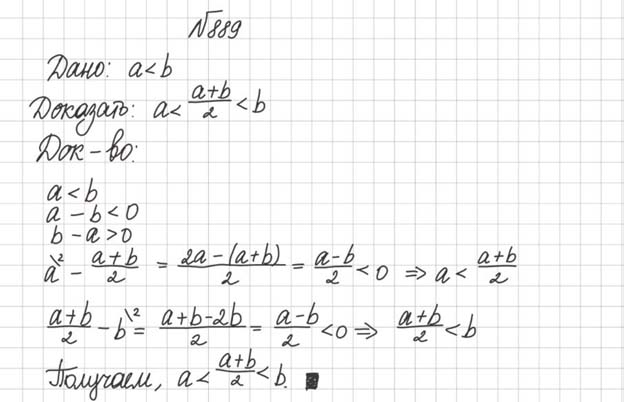 №889
Дано: a<b
Доказать: a< (a+b)/2 <b
Док-во:
a<b
a-b<0
b-a>0
a\² - (a+b)/2 = (2a-(a+b))/2 = (a-b)/2 <0 ⇒ a< (a+b)/2
(a+b)/2 - b\² = (a+b-2b)/2 = (a-b)/2 <0 ⇒ (a+b)/2 <b
Получаем, a< (a+b)/2 <b. ■